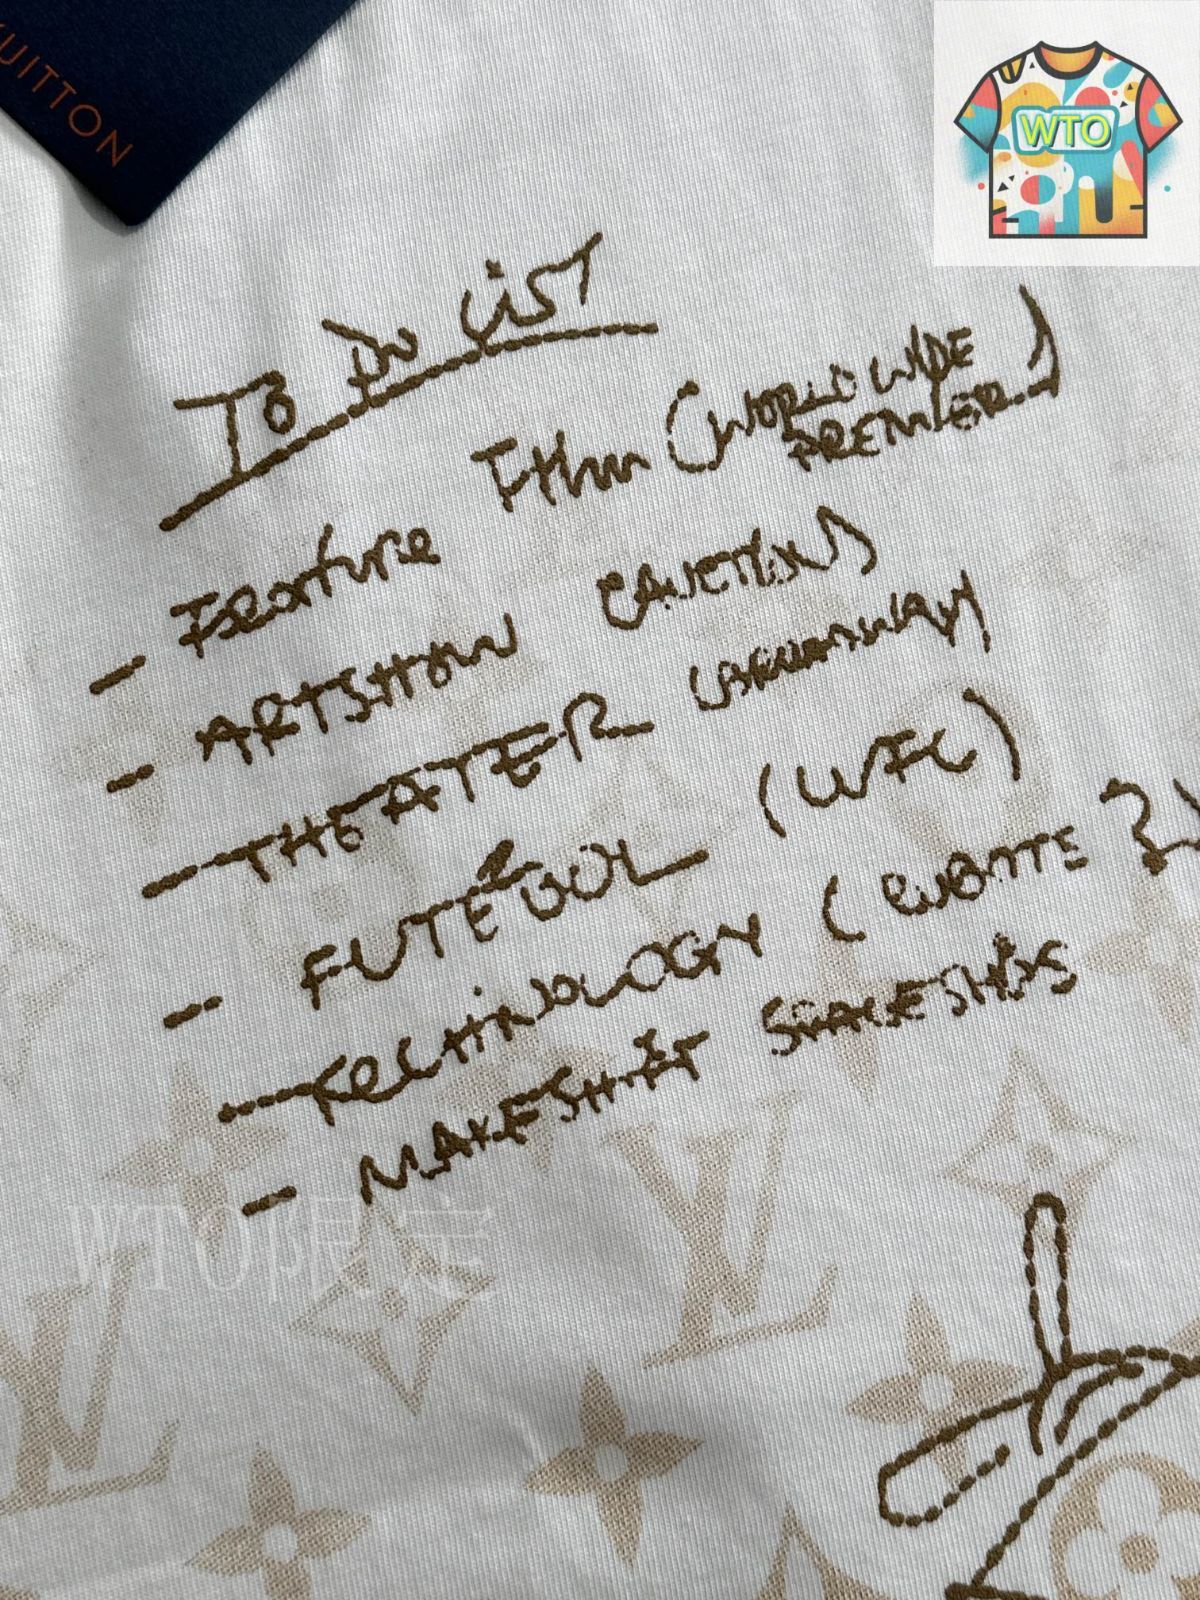 UITTON
WTO
TO DO LIST
- Feature Film (WORLD WIDE
PREMIER)
- ARTSHOW (AUCTION)
- THEATER
- FUTEBOL (WFC)
- TECHNOLOGY (
- MAKESHIFT SPACESHIPS
WTO限定